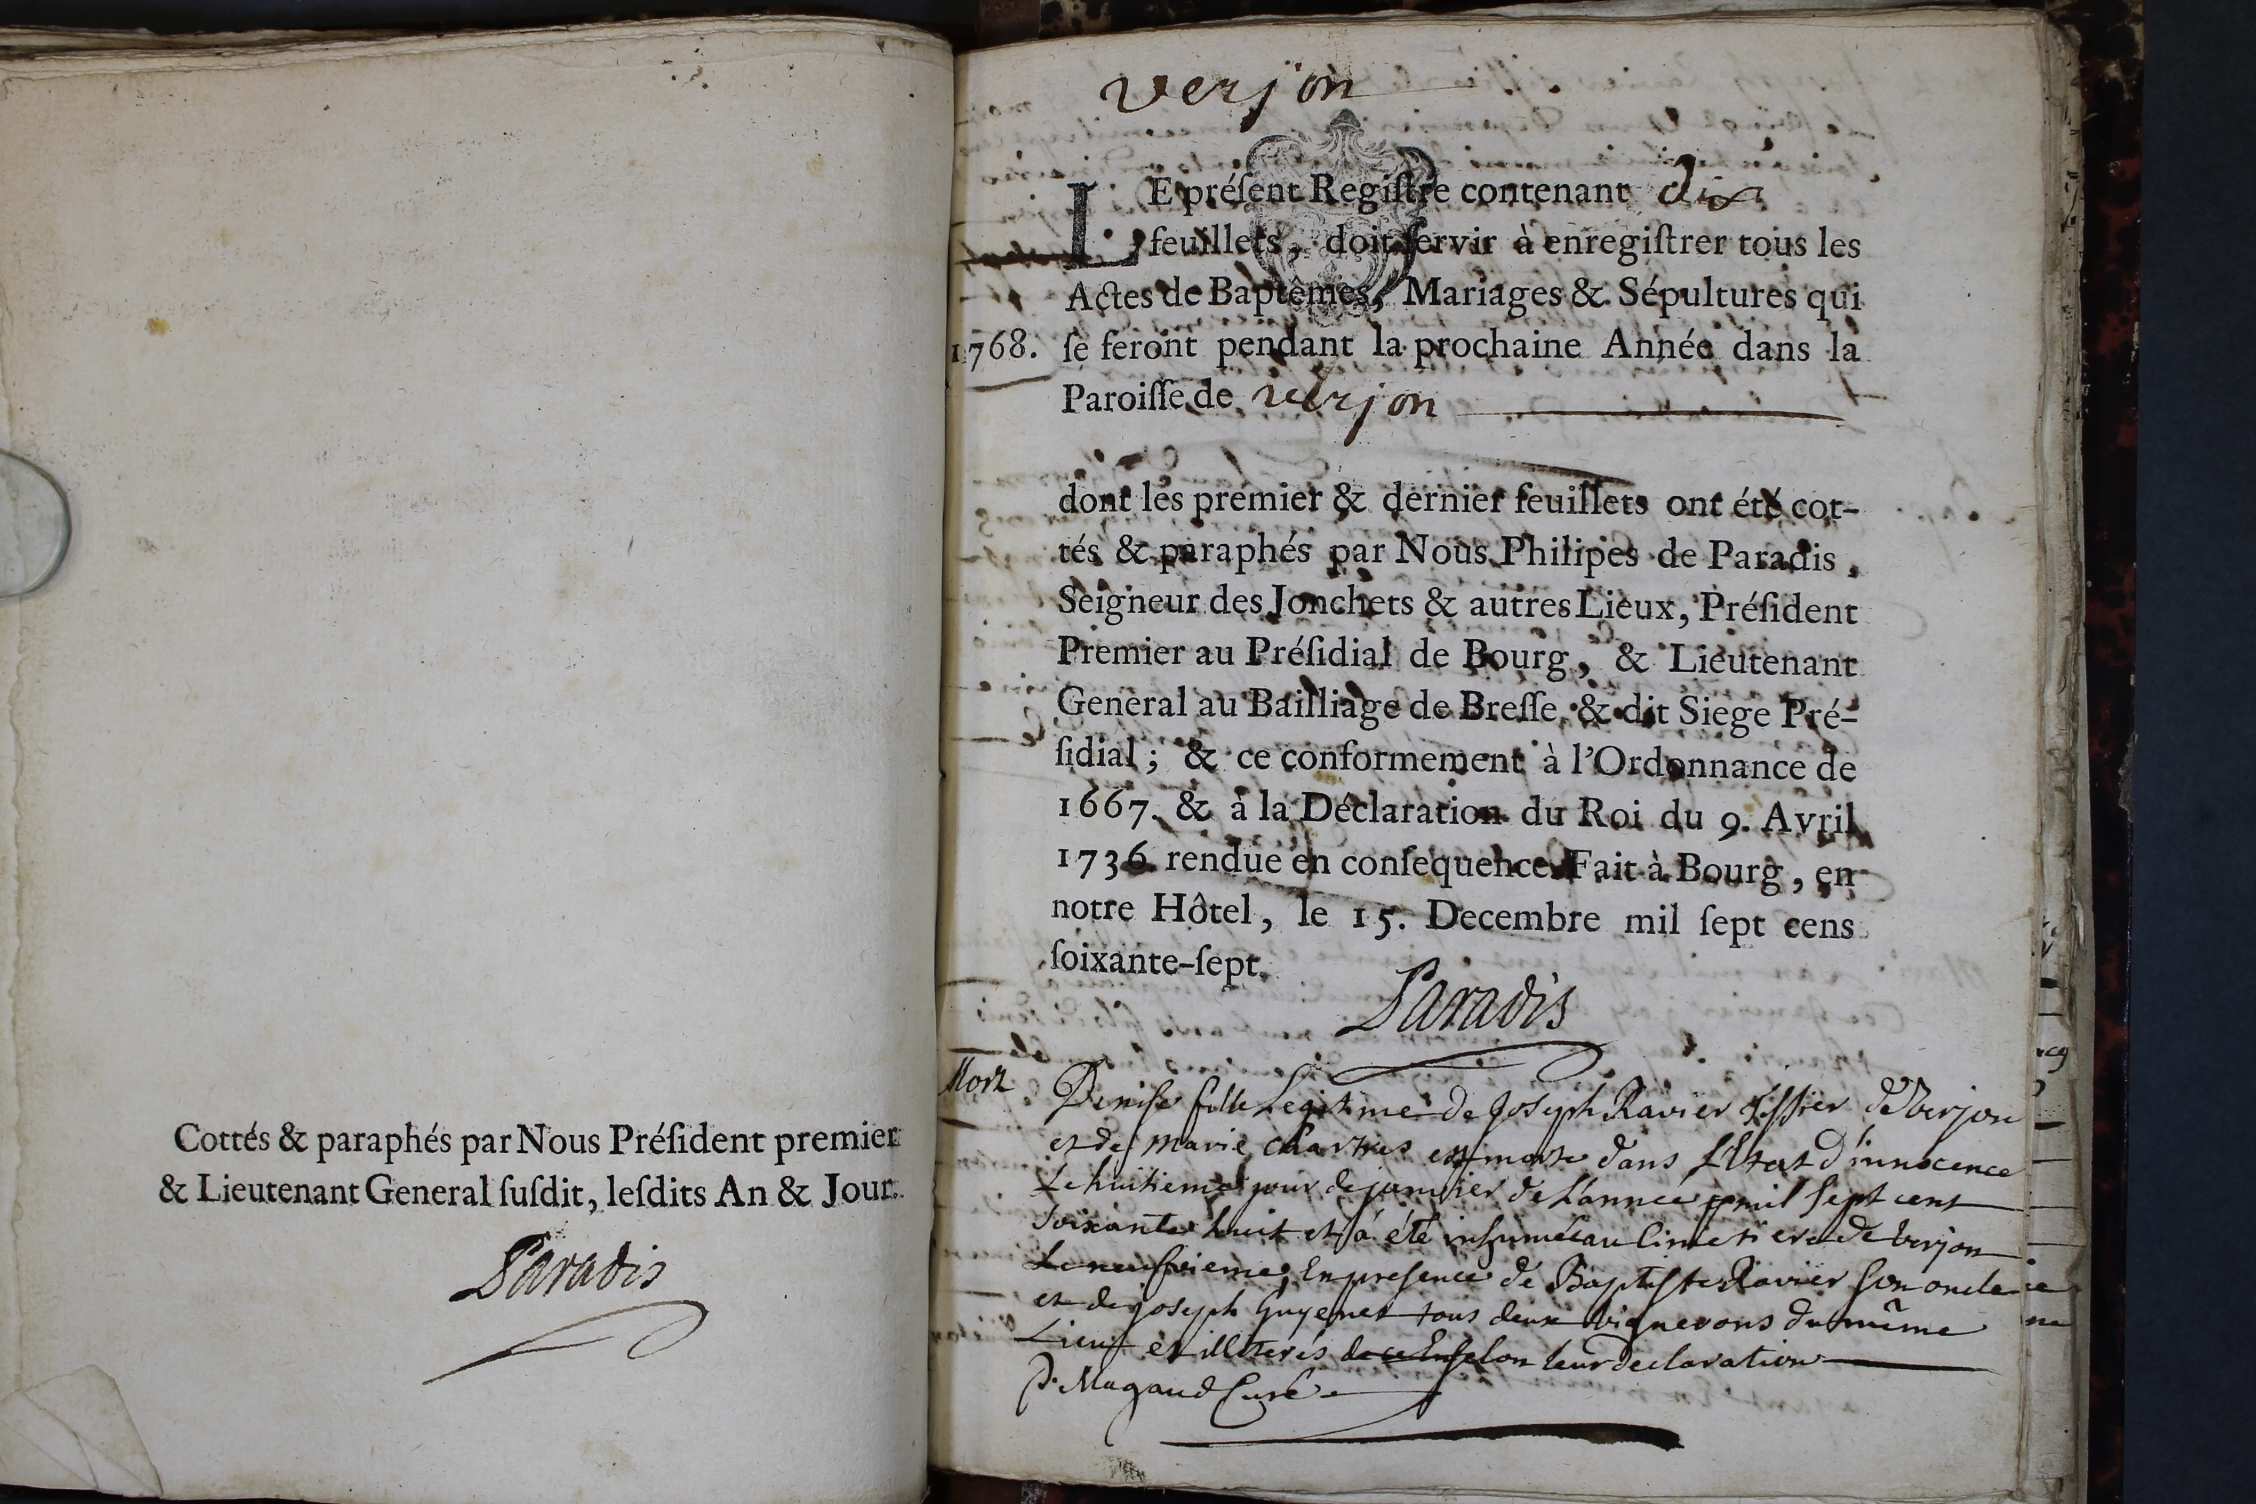 Cottés & paraphés par Nous Préſident premier
& Lieutenant General ſuſdit, leſdits An & Jour.
Paradis
verjon
LE préſent Regiſtre contenant dix
feuillets, doit ſervir à enregiſtrer tous les
Actes de Baptêmes, Mariages & Sépultures qui
1768. ſe feront pendant la prochaine Année dans la
Paroiſſe de verjon
dont les premier & dernier feuillets ont été cot-
tés & paraphés par Nous Philipes de Paradis,
Seigneur des Jonchets & autres Lieux, Préſident
Premier au Préſidial de Bourg, & Lieutenant
General au Bailliage de Breſſe, & dit Siege Pré-
ſidial; & ce conformement à l'Ordonnance de
1667. & à la Déclaration du Roi du 9. Avril
1736. rendue en conſequence. Fait à Bourg, en
notre Hôtel, le 15. Decembre mil ſept cens
ſoixante-ſept.
Paradis
Mort
Deniſe fille Legitime de Joseph Ravier tiſſier de verjon
et de marie Chartres est morte dans l'Etat d'innocence
Le huitieme jour de janvier de L'année mil sept cent
soixante huit et a été inhumée au Cimetiere de verjon
Le neufvieme, En presence de Baptiste Ravier son oncle
et de joseph Guyenet tous deux vignerons du même
Lieu et illiterés selon leur declaration
P. Magaud Curé